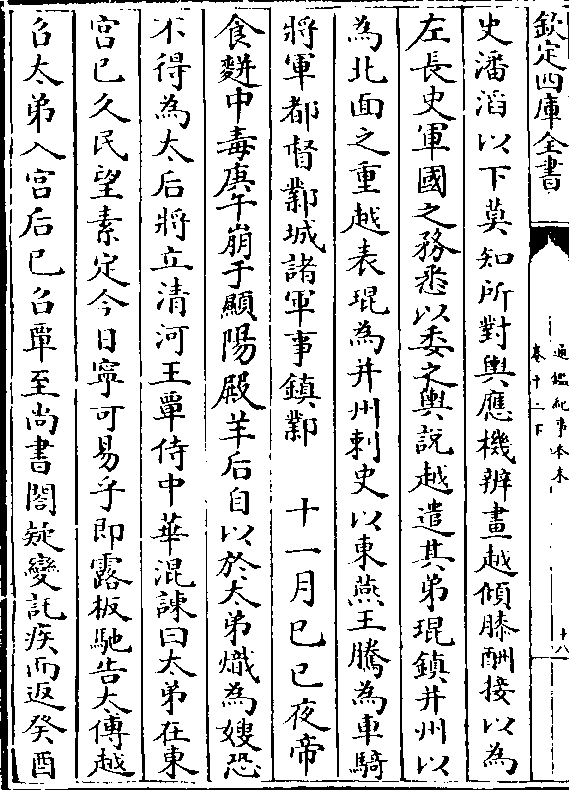 欽定四庫全書
通鑑紀事本末
卷十二下
十八
史潘滔以下莫知所對輿應機辨畫越傾膝酬接以為
左長史軍國之務悉以委之輿說越遣其弟琨鎮并州以
為北面之重越表琨為并州刺史以東燕王騰為車騎
將軍都督鄴城諸軍事鎮鄴　十一月己巳夜帝
食麩中毒庚午崩于顯陽殿羊后自以於太弟熾為嫂恐
不得為太后將立清河王覃侍中華混諫曰太弟在東
宮已久民望素定今日寧可易乎即露板馳告太傅越
召太弟入宮后已召覃至尚書閣疑變託疾而返癸酉